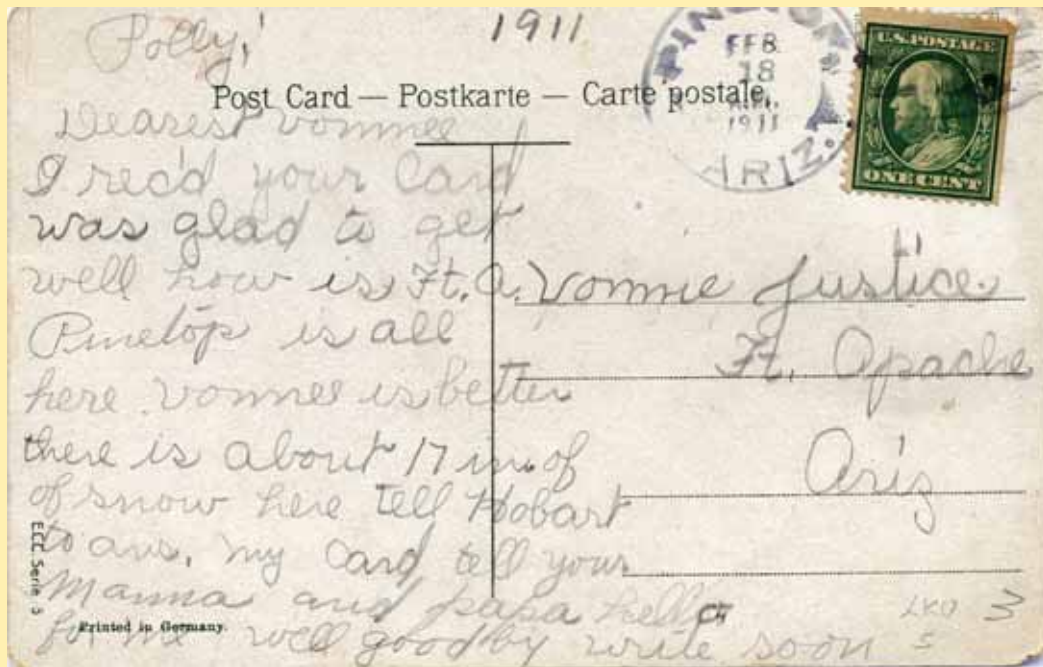 Polly!
1911
Post Card — Postkarte — Carte postale.
PINETOP
FEB
18
1911
ARIZ.
U.S. POSTAGE
ONE CENT
Dearest Vonnee
I rec'd your Card
was glad to get
well how is Ft. A.
Pinetop is all
here. Vonnee is better
there is about 17 in. of
of snow here tell Hobart
to ans. my Card tell your
Mamma and papa hello
for me well good by write soon
Vonnie Justice
Ft. Apache
Ariz
ECC Serie 5
Printed in Germany.
3